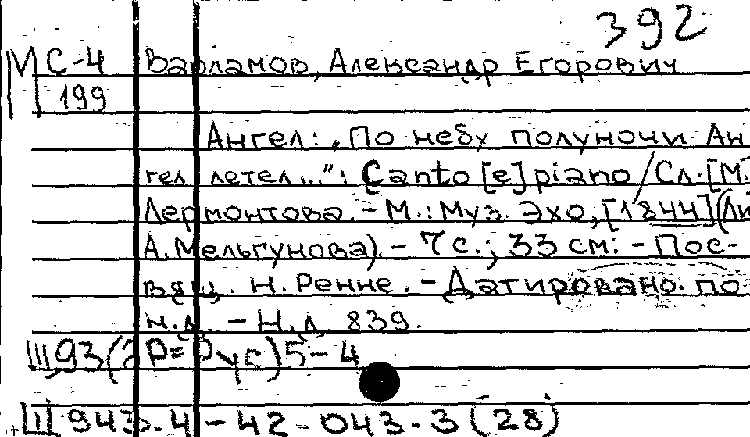 392
М С-4 Варламов, Александр Егорович
199
Ангел: „По небу полуночи Ан
гел летел...": Canto [e] piano / Сл. [М.
Лермонтова. - М.: Муз. Эхо, [1844] (Ли
А. Мельгунова). - 7 с.; 33 см. - Пос-
вящ. Н. Ренне. - Датировано по
н.д. - Н.д. 839.
Ш93(2Р=Рус)5-4
Ш943-4-42-043.3(28)